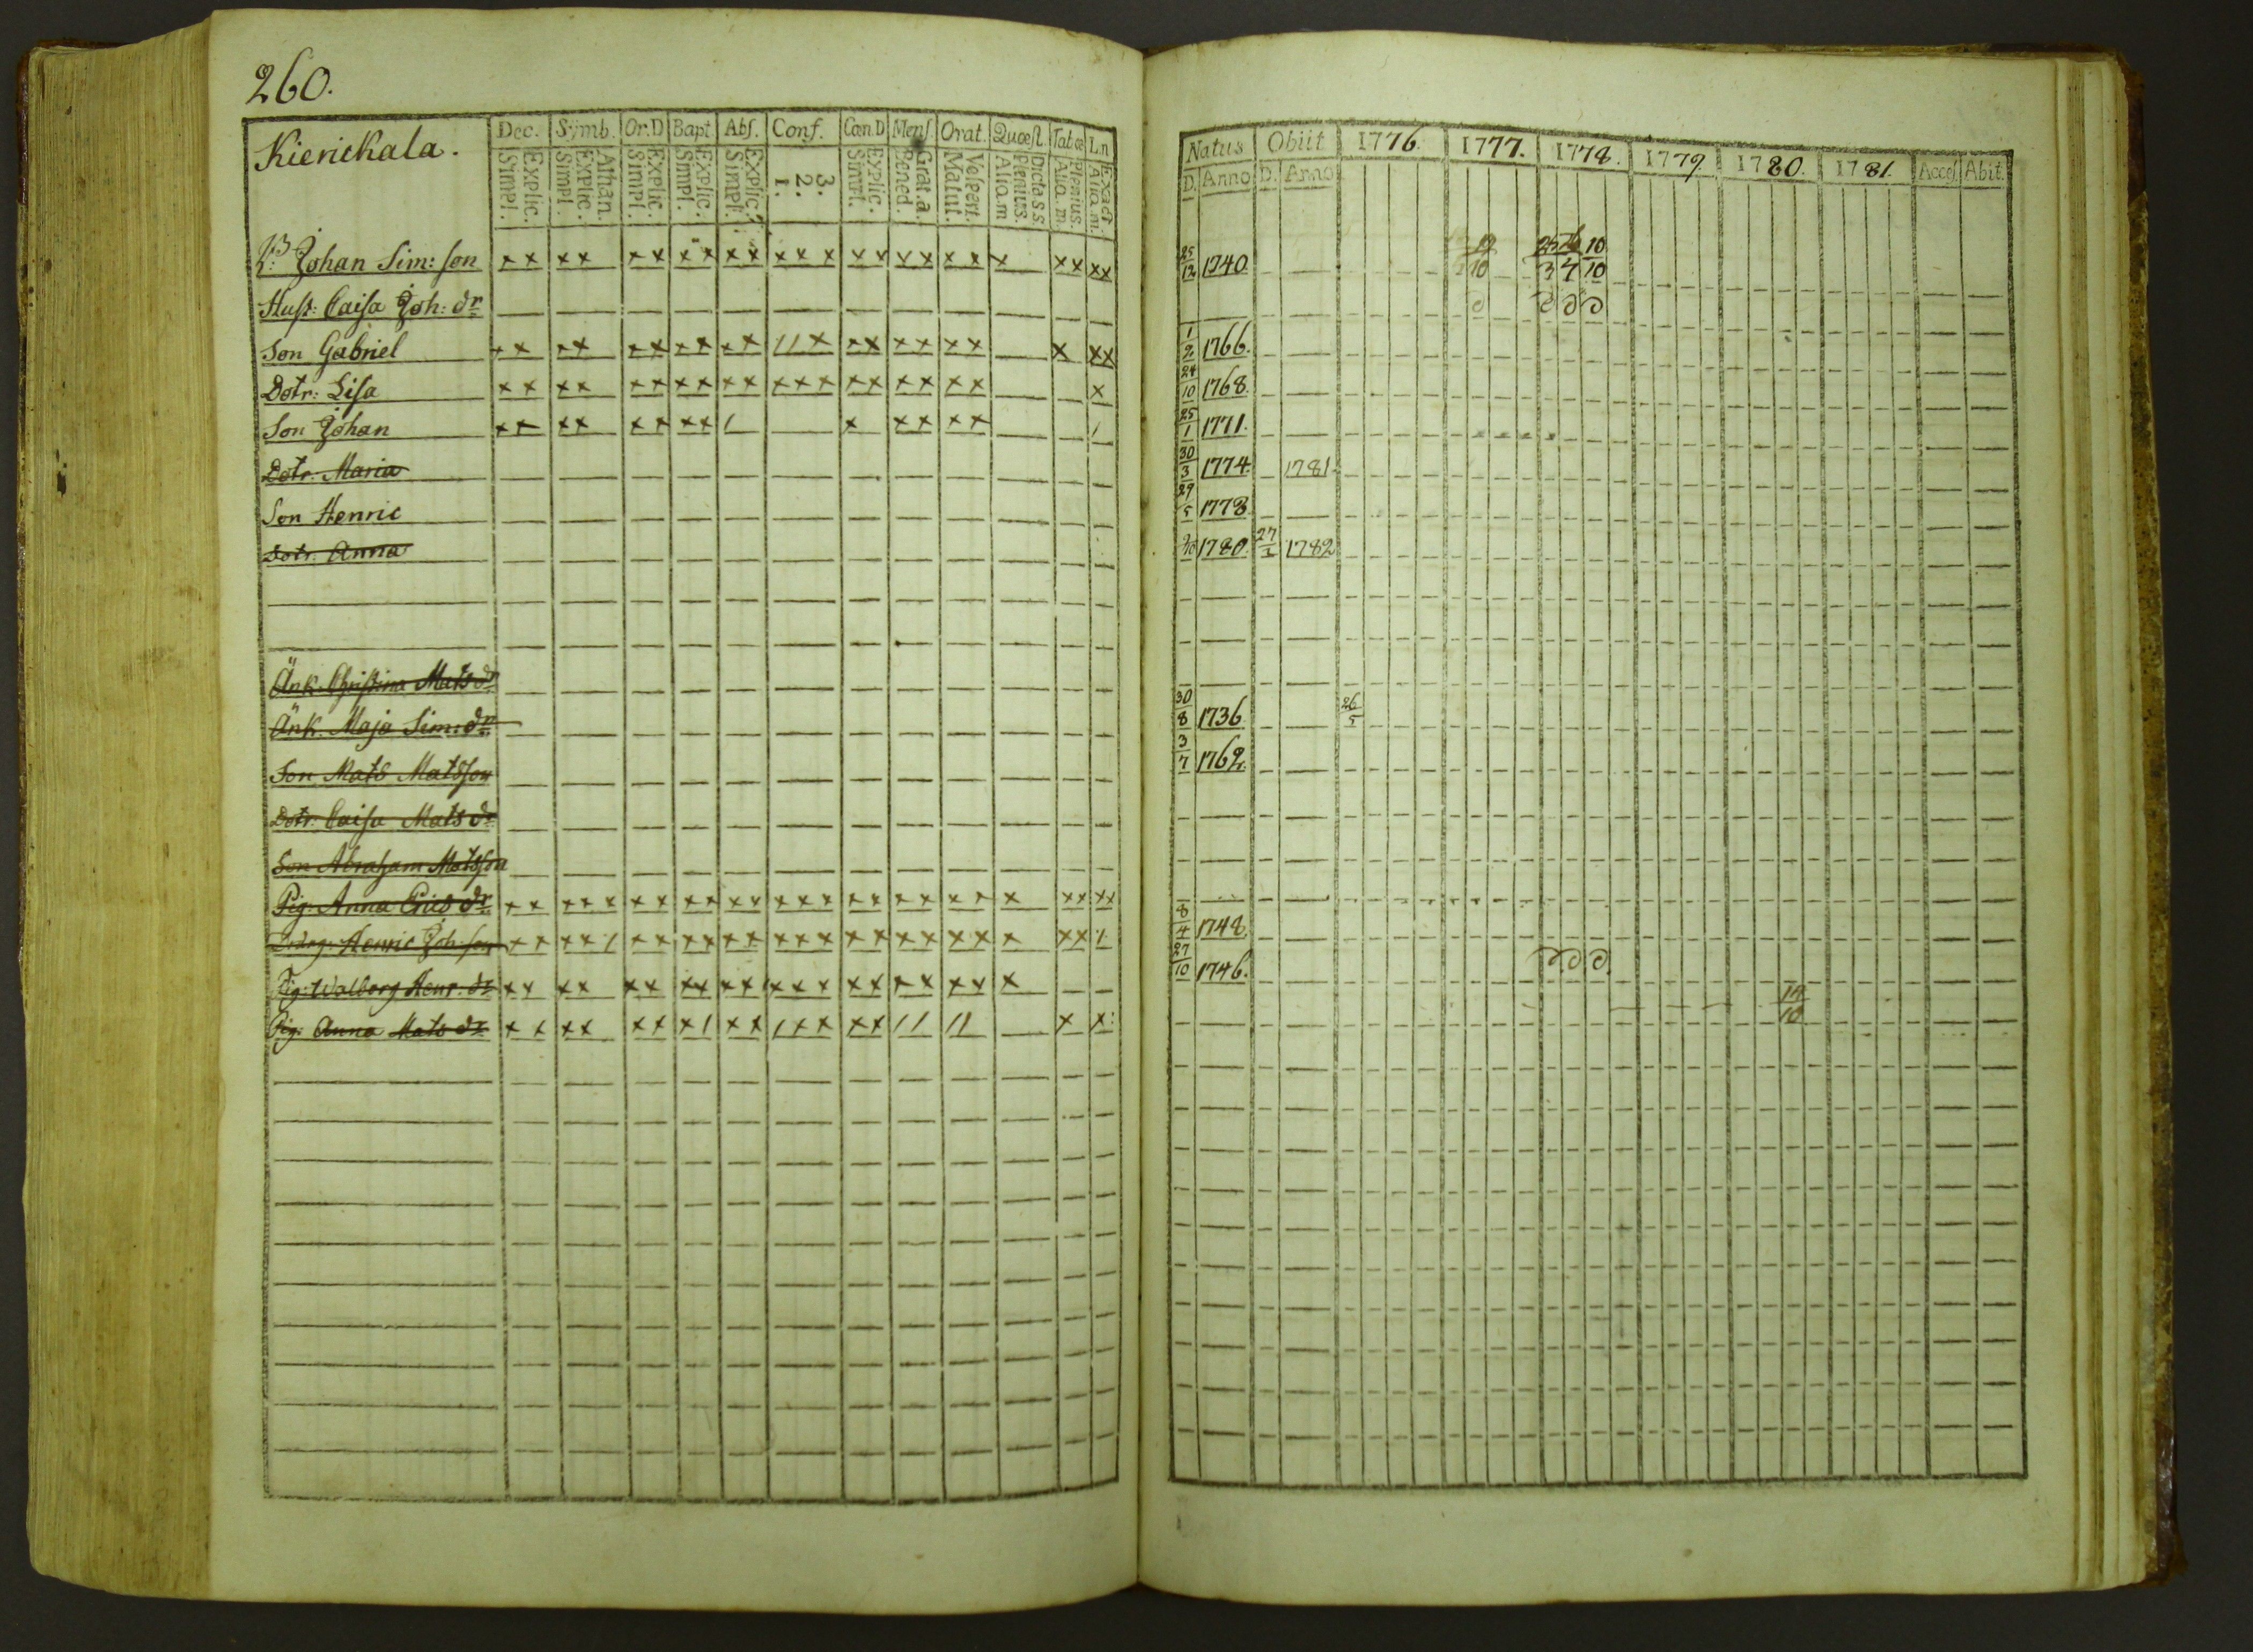 260.
Kierickala.
Dec. Symb. Or.D Bapt. Abs. Conf. Can.D Mens. Orat. Quæst. Tabæ L.n
Simpl. Explic. Simpl. Explic. Athan. Simpl. Explic. Simpl. Explic. Simpl. Explic. 1. 2. 3. Simpl. Explic. Bened. Grat.a. Matut. Vespert. Aliq.m Plenius. Dicta s s Aliq.m Plenius. Aliq.m Exact
Natus Obiit 1776. 1777. 1778. 1779 1780. 1781. Access. Abit.
D. Anno D. Anno
Johan Sim: son x x x x x x x x x x x x x x x x x x x x x x x x 25/12 1740 19/10 25/3 26/4 10/10
Hust: Caisa Joh: dr
Son Gabriel x x x x x x x x x x / / x x x x x x x x x x 1/2 1766.
Dotr: Lisa x x x x x x x x x x x x x x x x x x x x 24/10 1768.
Son Johan x x x x x x x x / x x x x x / 25/1 1771.
Dotr. Maria 30/3 1774. 1781.
Son Henric 29/5 1778
Dotr. Anna 1780. 27/1 1782
Änk. Christina Mats dr
Änk. Maja Sim: dr 30/8 1736 26/5
Son Mats Matsson 3/7 1762.
Dotr: Caisa Mats dr
Son Abraham Matsson
Pig: Anna Erics dr x x x x x x x x x x x x x x x x x x x x x x x x x 8/4 1748.
Dräng: Henric Joh: son x x x x / x x x x x x x x x x x x x x x x x x / 27/10 1746.
Pig: Walborg Henr. dr x x x x x x x x x x x x x x x x x x x x
Pig: Anna Mats dr x x x x x x x / x x / x x x x / / / / x x 19/10